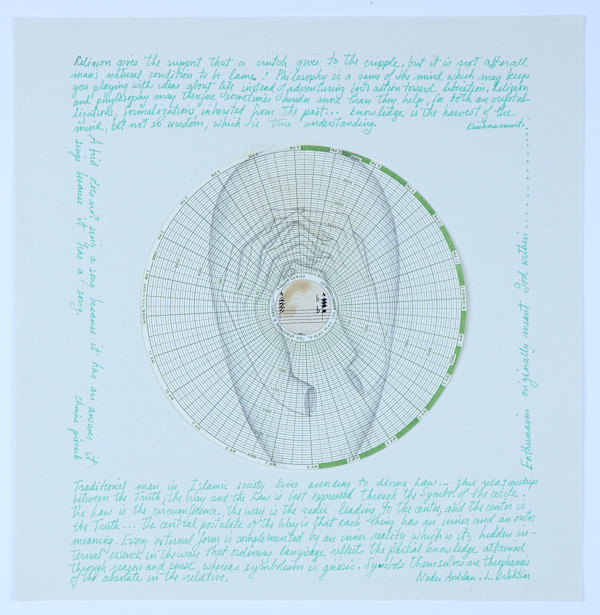 Religion gives the support that a crutch gives to the cripple, but it is not afterall
man's natural condition to be lame! Philosophy is a game of the mind which may keep
you playing with ideas about life instead of adventuring into action toward liberation. Religion
and phylosophy may therefore sometimes hinder more than they help, for both are crystal-
lizations, formalizations inherited from the past... knowledge is the harvest of the
mind, but not so wisdom, which is true understanding.
Krishnamurti
A bird does not sing a song because it has an answer, it
sings because it has a song.
chinese proverb
Enthusiasm originally meant God within
Traditional man in Islamic society lives according to divine Law... This relationship
between the Truth, the Way and the Law is best expressed through the symbol of the circle.
The Law is the circumference, the way is the radii leading to the centre, and the center is
the Truth... The central postulate of the Way is that each thing has an inner and an outer
meaning. Every external form is complemented by an inner reality which is its hidden in-
ternal essence in the way that ordinary language reflects the partial knowledge attained
through reason and sense whereas symbolism is gnosis. Symbols themselves are theophanies
of the absolute in the relative.
Nader Ardalan. L. Bakhtiar